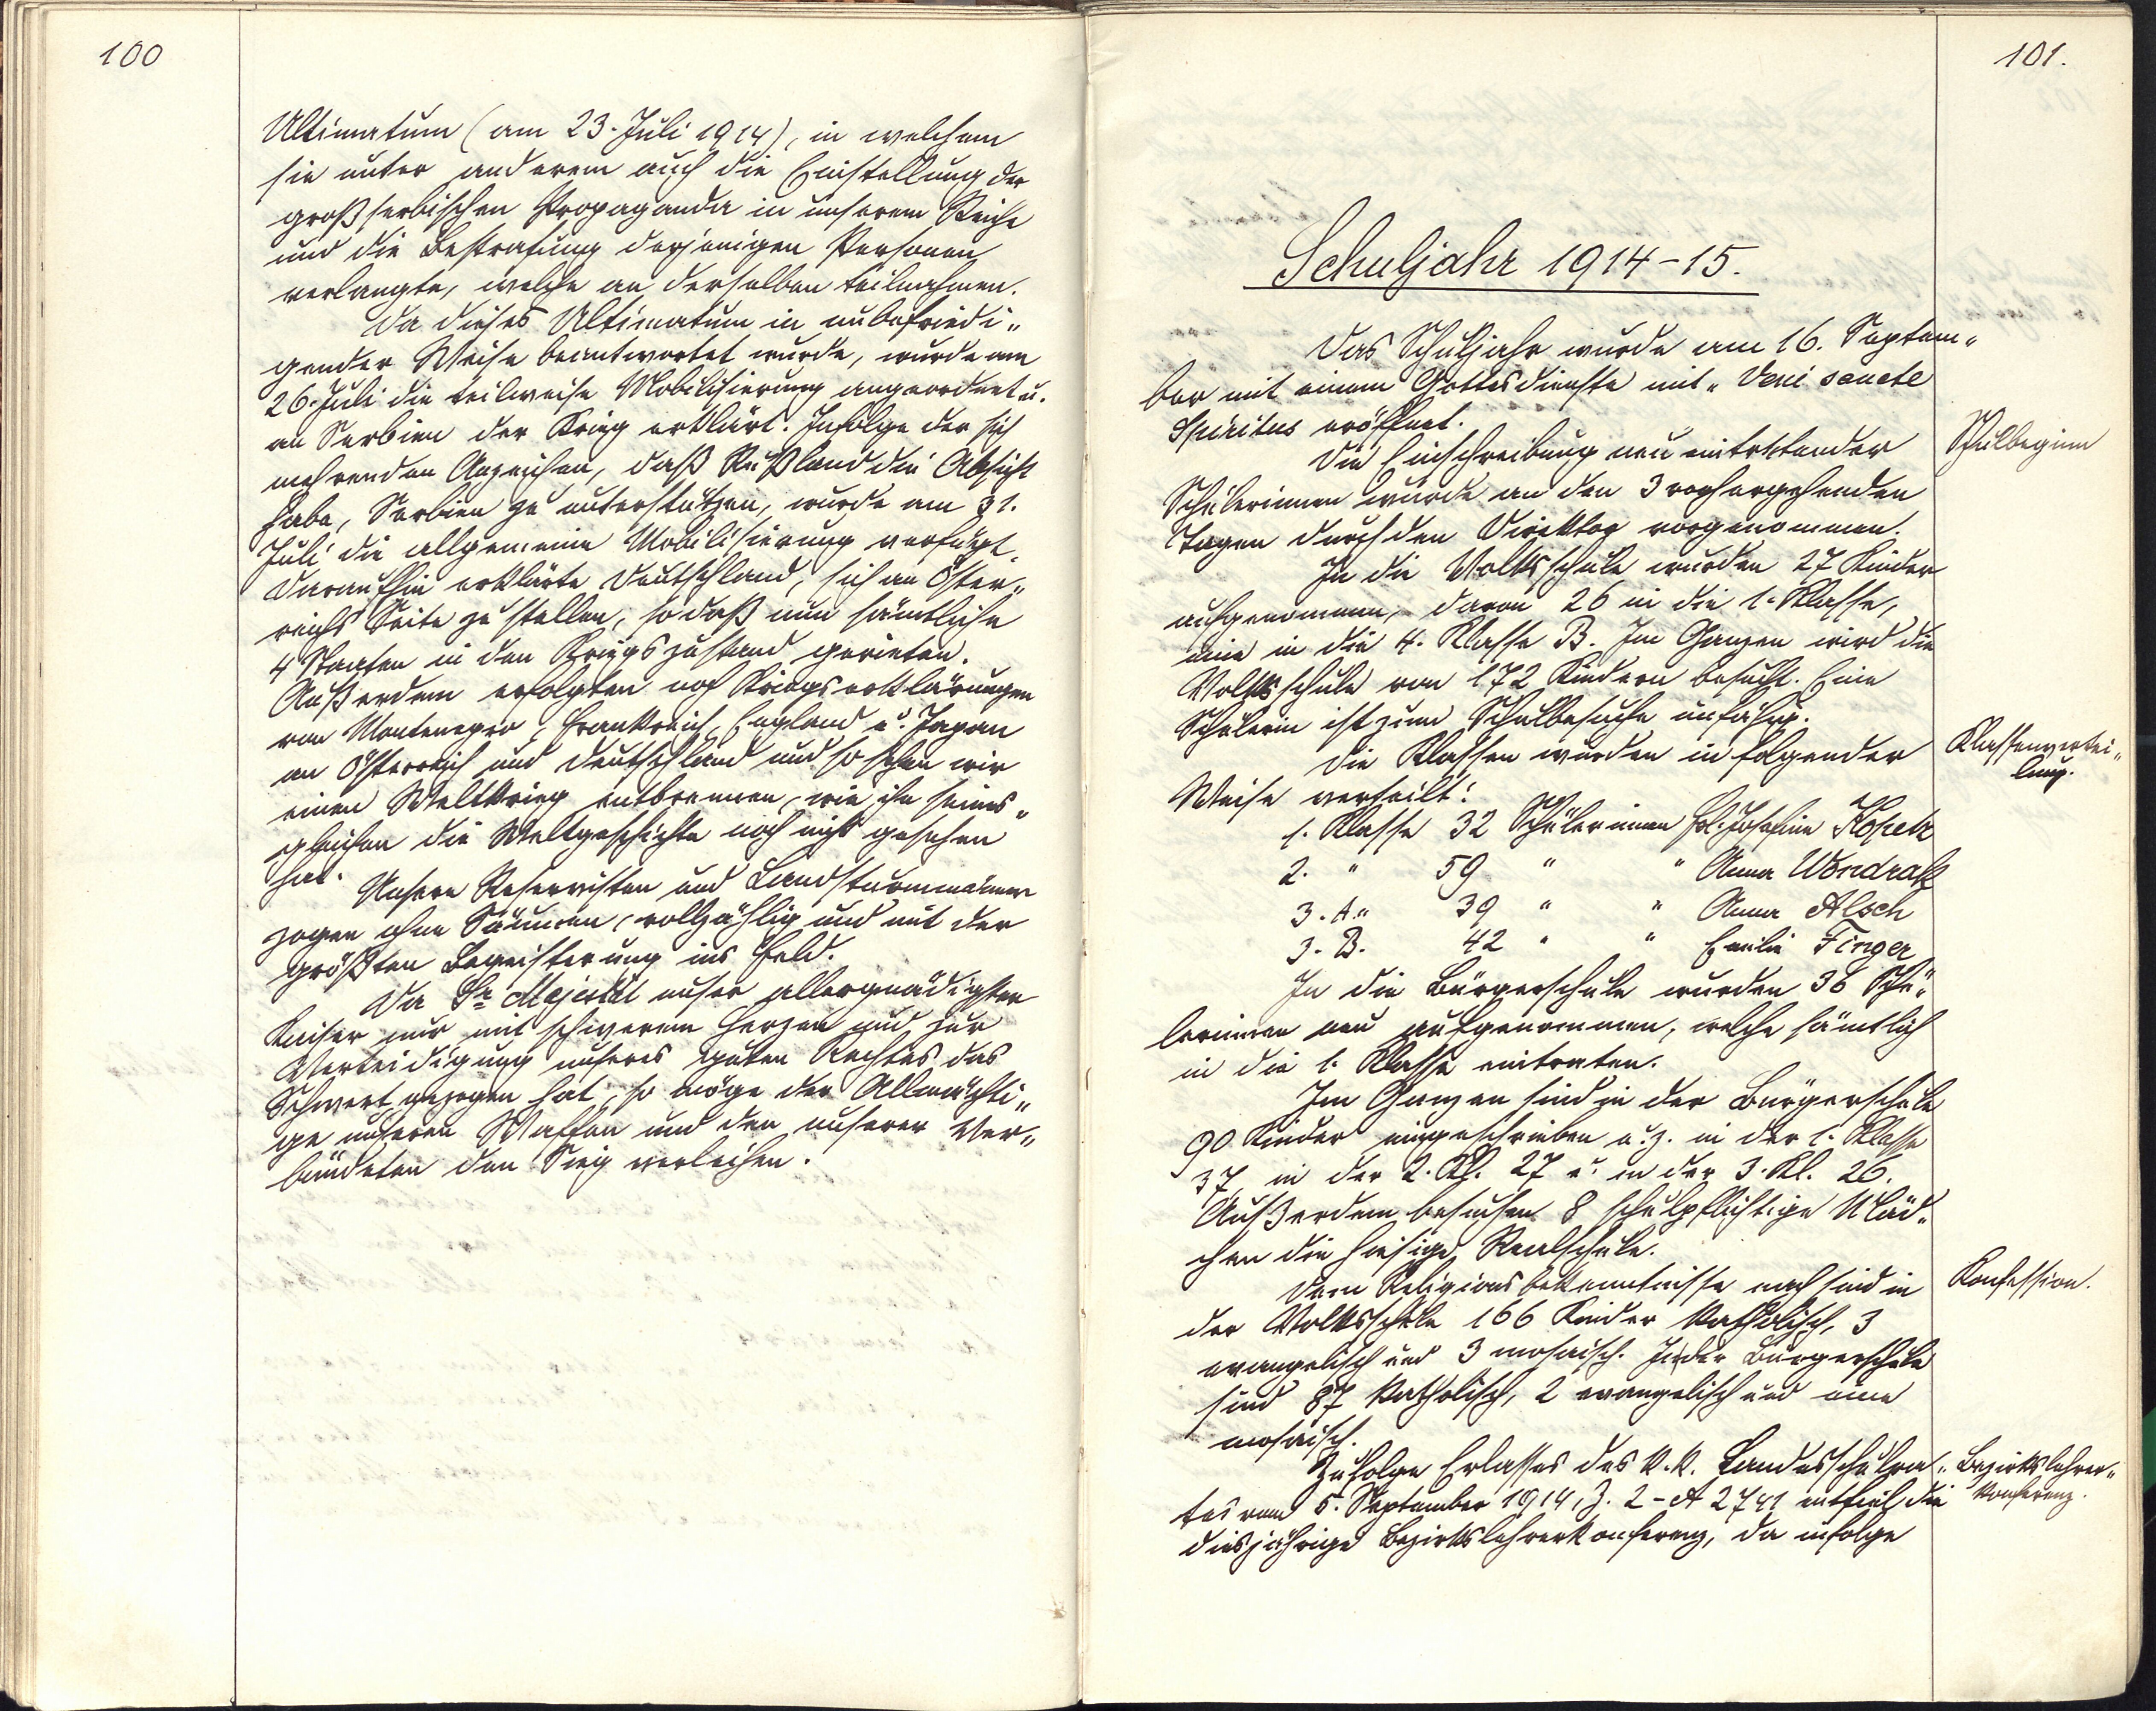 100
Ultimatum (am 23. Juli 1914), in welchem
sie unter anderem auch die Einstellung der
großserbischen Propaganda in unserem Reiche
und die Bestrafung derjenigen Personen
verlangte, welche an derselben teilnahmen.
Da dieses Ultimatum in unbefriedi„
gender Weise beantwortet wurde, wurde am
26. Juli die teilweise Mobilisierung angeordnet u.
an Serbien der Krieg erklärt. Infolge der sich
mehrenden Anzeichen, daß Rußland die Absicht
habe, Serbien zu unterstützen, wurde am 31.
Juli die allgemeine Mobilisierung verfügt.
Daraufhin erklärte Deutschland, sich an Öster„
reichs Seite zu stellen, so daß nun sämtliche
4 Staaten in den Kriegszustand gerieten.
Außerdem erfolgten noch Kriegserklärungen
von Montenegro, Frankreich, England u. Japan
an Österreich und Deutschland und so sehen wir
einen Weltkrieg entbrennen, wie ihn seines„
gleichen die Weltgeschichte noch nicht gesehen
hat.
Unsere Reservisten und Landsturmmänner
zogen ohne Säumen, vollzählig und mit der
größten Begeisterung ins Feld.
Da Se Majestät unser allergnädigster
Kaiser nur mit schwerem Herzen und zur
Verteidigung unseres guten Rechtes das
Schwert gezogen hat, so möge der Allmächti„
ge unseren Waffen und den unserer Ver„
bündeten den Sieg verleihen.
101.
Schuljahr 1914-15.
Das Schuljahr wurde am 16. Septem„
ber mit einem Gottesdienste mit „Veni sancte
Spiritus eröffnet.
Schulbeginn
Die Einschreibung neu eintretender
Schülerinnen wurde an den 3 vorhergehenden
Tagen durch den Direktor vorgenommen.
In die Volksschule wurden 27 Kinder
aufgenommen, davon 26 in die 1. Klasse,
eine in die 4. Klasse B. Im Ganzen wird die
Volksschule von 172 Kindern besucht. Eine
Schülerin ist zum Schulbesuche unfähig.
Die Klassen wurden in folgender
Klassenvertei„
lung.
Weise verteilt:
1. Klasse 32 Schülerinnen Frl. Josefine Kopetz
2. " 59 " " Anna Wondrak
3. A. " 39 " " Anna Alsch
3. B. 42 " " Emilie Finger
In die Bürgerschule wurden 36 Schü„
lerinnen neu aufgenommen, welche sämtlich
in die 1. Klasse eintraten.
Im Ganzen sind in der Bürgerschule
90 Kinder eingeschrieben u. z. in der 1. Klasse
37, in der 2. Kl. 27 u. in der 3. Kl. 26.
Außerdem besuchen 8 schulpflichtige Mäd„
chen die hiesige Realschule.
Dem Religionsbekenntnisse nach sind in
Konfession.
der Volksschule 166 Kinder katholisch, 3
evangelisch und 3 mosaisch. In der Bürgerschule
sind 87 katholisch, 2 evangelisch und eine
mosaisch.
Zufolge Erlasses des k.k. Landesschulra„
Bezirkslehrer„
konferenz.
tes vom 5. September 1914, Z. 2-A 2741 entfiel die
diesjährige Bezirkslehrerkonferenz, da infolge